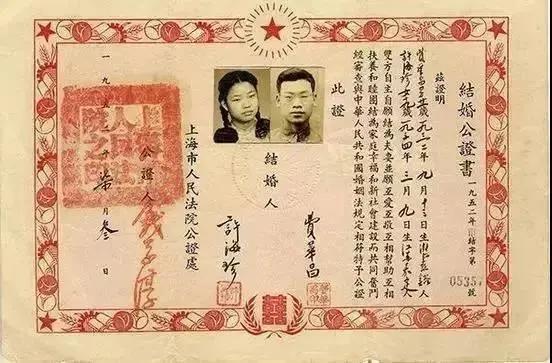 結婚公證書
一九五二年 結字第
0535
茲證明
費華昌 歲 一九三二年 九月十三日生 人
許海珍 歲 一九三四年 三月九日生 人
雙方自主自願結為夫妻並願互愛互敬互相幫助互相
扶養和睦團結為家庭幸福和新社會建設而共同奮鬥
經審查與中華人民共和國婚姻法規定相符特予公證
此證
結婚人
費華昌
許海珍
上海市人民法院公證處
公證人
一九五二年柒月叁日
囍